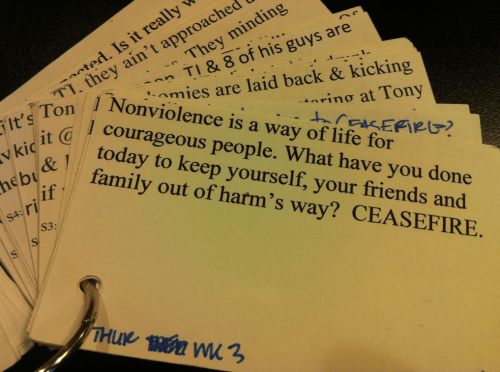 Is it really
they ain't approached
They minding
TJ & 8 of his guys are
omies are laid back & kicking
at Tony
CEASEFIRE?
It's
Ton
it @
kic
& 
if
S4:
S3:
Nonviolence is a way of life for
courageous people. What have you done
today to keep yourself, your friends and
family out of harm's way? CEASEFIRE.
THUR WK 3